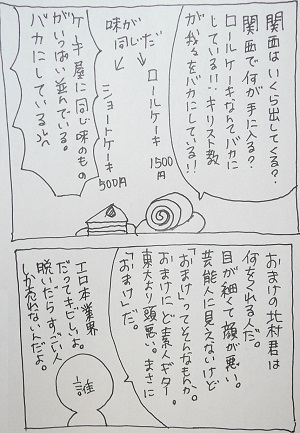 関西はいくら出してくる?
関西で何が手に入る?
ロールケーキなんてバカに
している!!キリスト教
が我々をバカにしている!!
味が
同じだ
ロールケーキ
1500
円
ショートケーキ
500円
ケーキ屋に同じ味のもの
がいっぱい並んでいる。
バカにしている
おまけの北村君は
何をくれる人だ。
目が細くて顔が悪い。
芸能人に見えないけど
「おまけ」ってそんなもんか。
おまけにど素人ギター。
東大より頭悪い。まさに
「おまけ」だ。
エロ本業界
だってキビしいよ。
脱いだらすっごい人
しか売れないんだよ。
誰